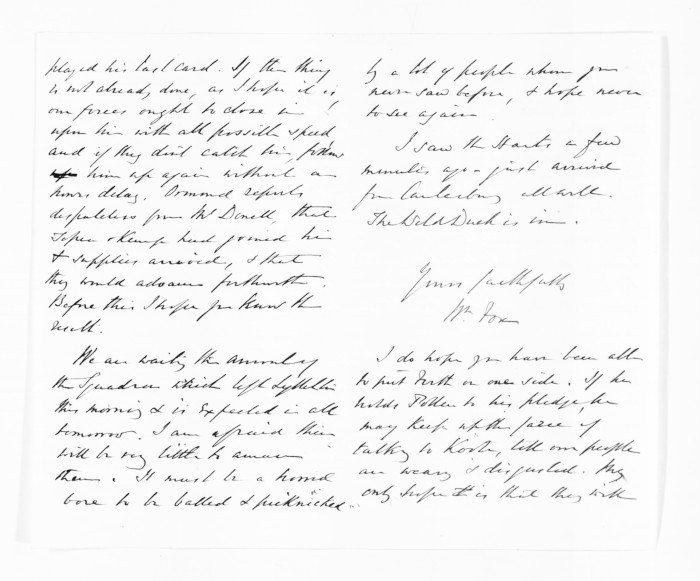 played his last card. If the thing
is not already done, as I hope it is,
our forces ought to close in
upon him with all possible speed
and if they dont catch him, follow
him up again without an
hours delay. Ormond reports
dispatches from Mr Donell, that
Topia & Kemp had joined him
& supplies arrived, & that
they would advance forthwith.
Before this I hope you know the
result.
We are waiting the arrival of
the Squadron which left Lyttelton
this morning & is expected in all
tomorrow. I am afraid there
will be very little to amuse
them. It must be a horrid
bore to be balled & picknicked
by a lot of people whom you
never saw before, & hope never
to see again.
I saw the Harts a few
minutes ago - just arrived
from Canterbury all well.
The Wild Duck is in.
Yours faithfully
Wm Fox
I do hope you have been able
to put Firth on one side. If he
holds to his pledge, he
may keep up the farce of
talking to Kooti, till our people
are weary & disgusted. My
only hope is that they will